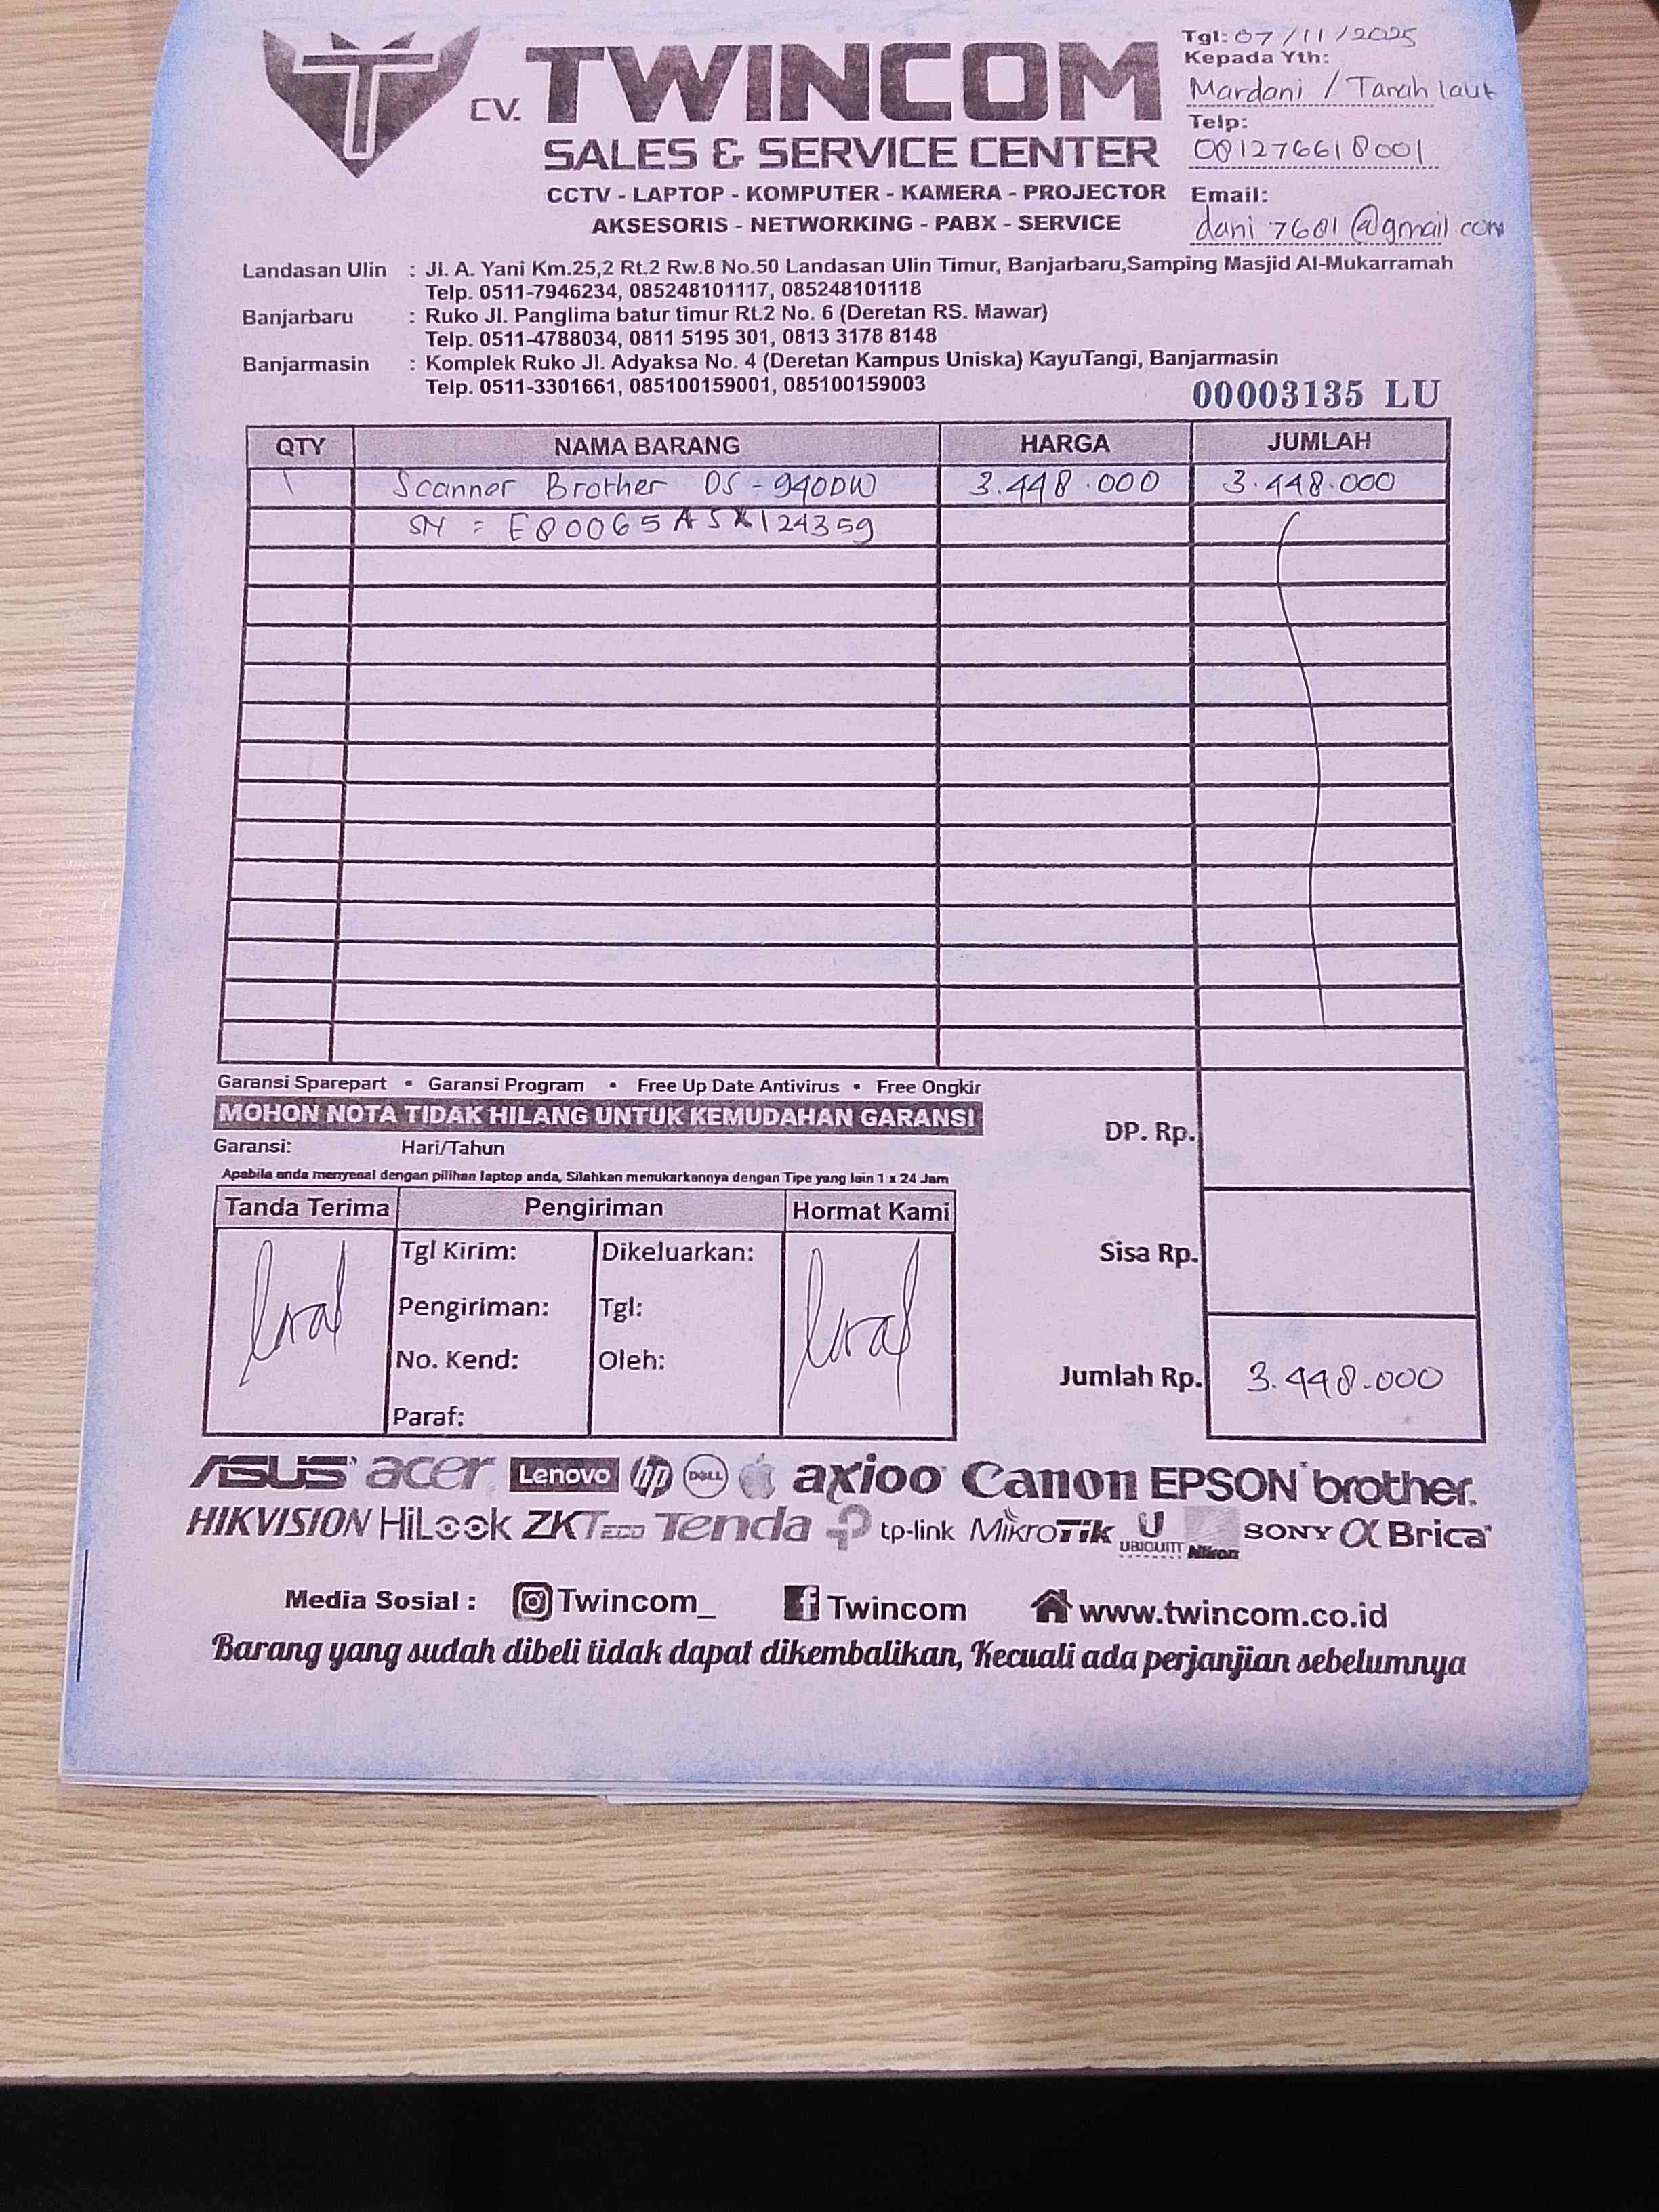 CV. TWINCOM
SALES & SERVICE CENTER
CCTV - LAPTOP - KOMPUTER - KAMERA - PROJECTOR
AKSESORIS - NETWORKING - PABX - SERVICE
Tgl: 07/11/2025
Kepada Yth:
Mardani / Tanah laut
Telp:
081276618001
Email:
dani7681@gmail.com
Landasan Ulin : Jl. A. Yani Km.25,2 Rt.2 Rw.8 No.50 Landasan Ulin Timur, Banjarbaru,Samping Masjid Al-Mukarramah
Telp. 0511-7946234, 085248101117, 085248101118
Banjarbaru : Ruko Jl. Panglima batur timur Rt.2 No. 6 (Deretan RS. Mawar)
Telp. 0511-4788034, 0811 5195 301, 0813 3178 8148
Banjarmasin : Komplek Ruko Jl. Adyaksa No. 4 (Deretan Kampus Uniska) KayuTangi, Banjarmasin
Telp. 0511-3301661, 085100159001, 085100159003
00003135 LU
QTY NAMA BARANG HARGA JUMLAH
1 Scanner Brother DS-940DW 3.448.000 3.448.000
SN =
Garansi Sparepart • Garansi Program • Free Up Date Antivirus • Free Ongkir
MOHON NOTA TIDAK HILANG UNTUK KEMUDAHAN GARANSI
Garansi: Hari/Tahun
Apabila anda menyesal dengan pilihan laptop anda, Silahkan menukarkannya dengan Tipe yang lain 1 x 24 Jam
DP. Rp.
Sisa Rp.
Jumlah Rp. 3.448.000
Tanda Terima Pengiriman Hormat Kami
Tgl Kirim: Dikeluarkan:
Pengiriman: Tgl:
No. Kend: Oleh:
Paraf:
ASUS acer Lenovo hp DELL axioo Canon EPSON brother
HIKVISION HiLook ZKTECO Tenda tp-link MikroTik U UBIQUITI Nikon SONY α Brica
Media Sosial : Twincom_ Twincom www.twincom.co.id
Barang yang sudah dibeli tidak dapat dikembalikan, Kecuali ada perjanjian sebelumnya